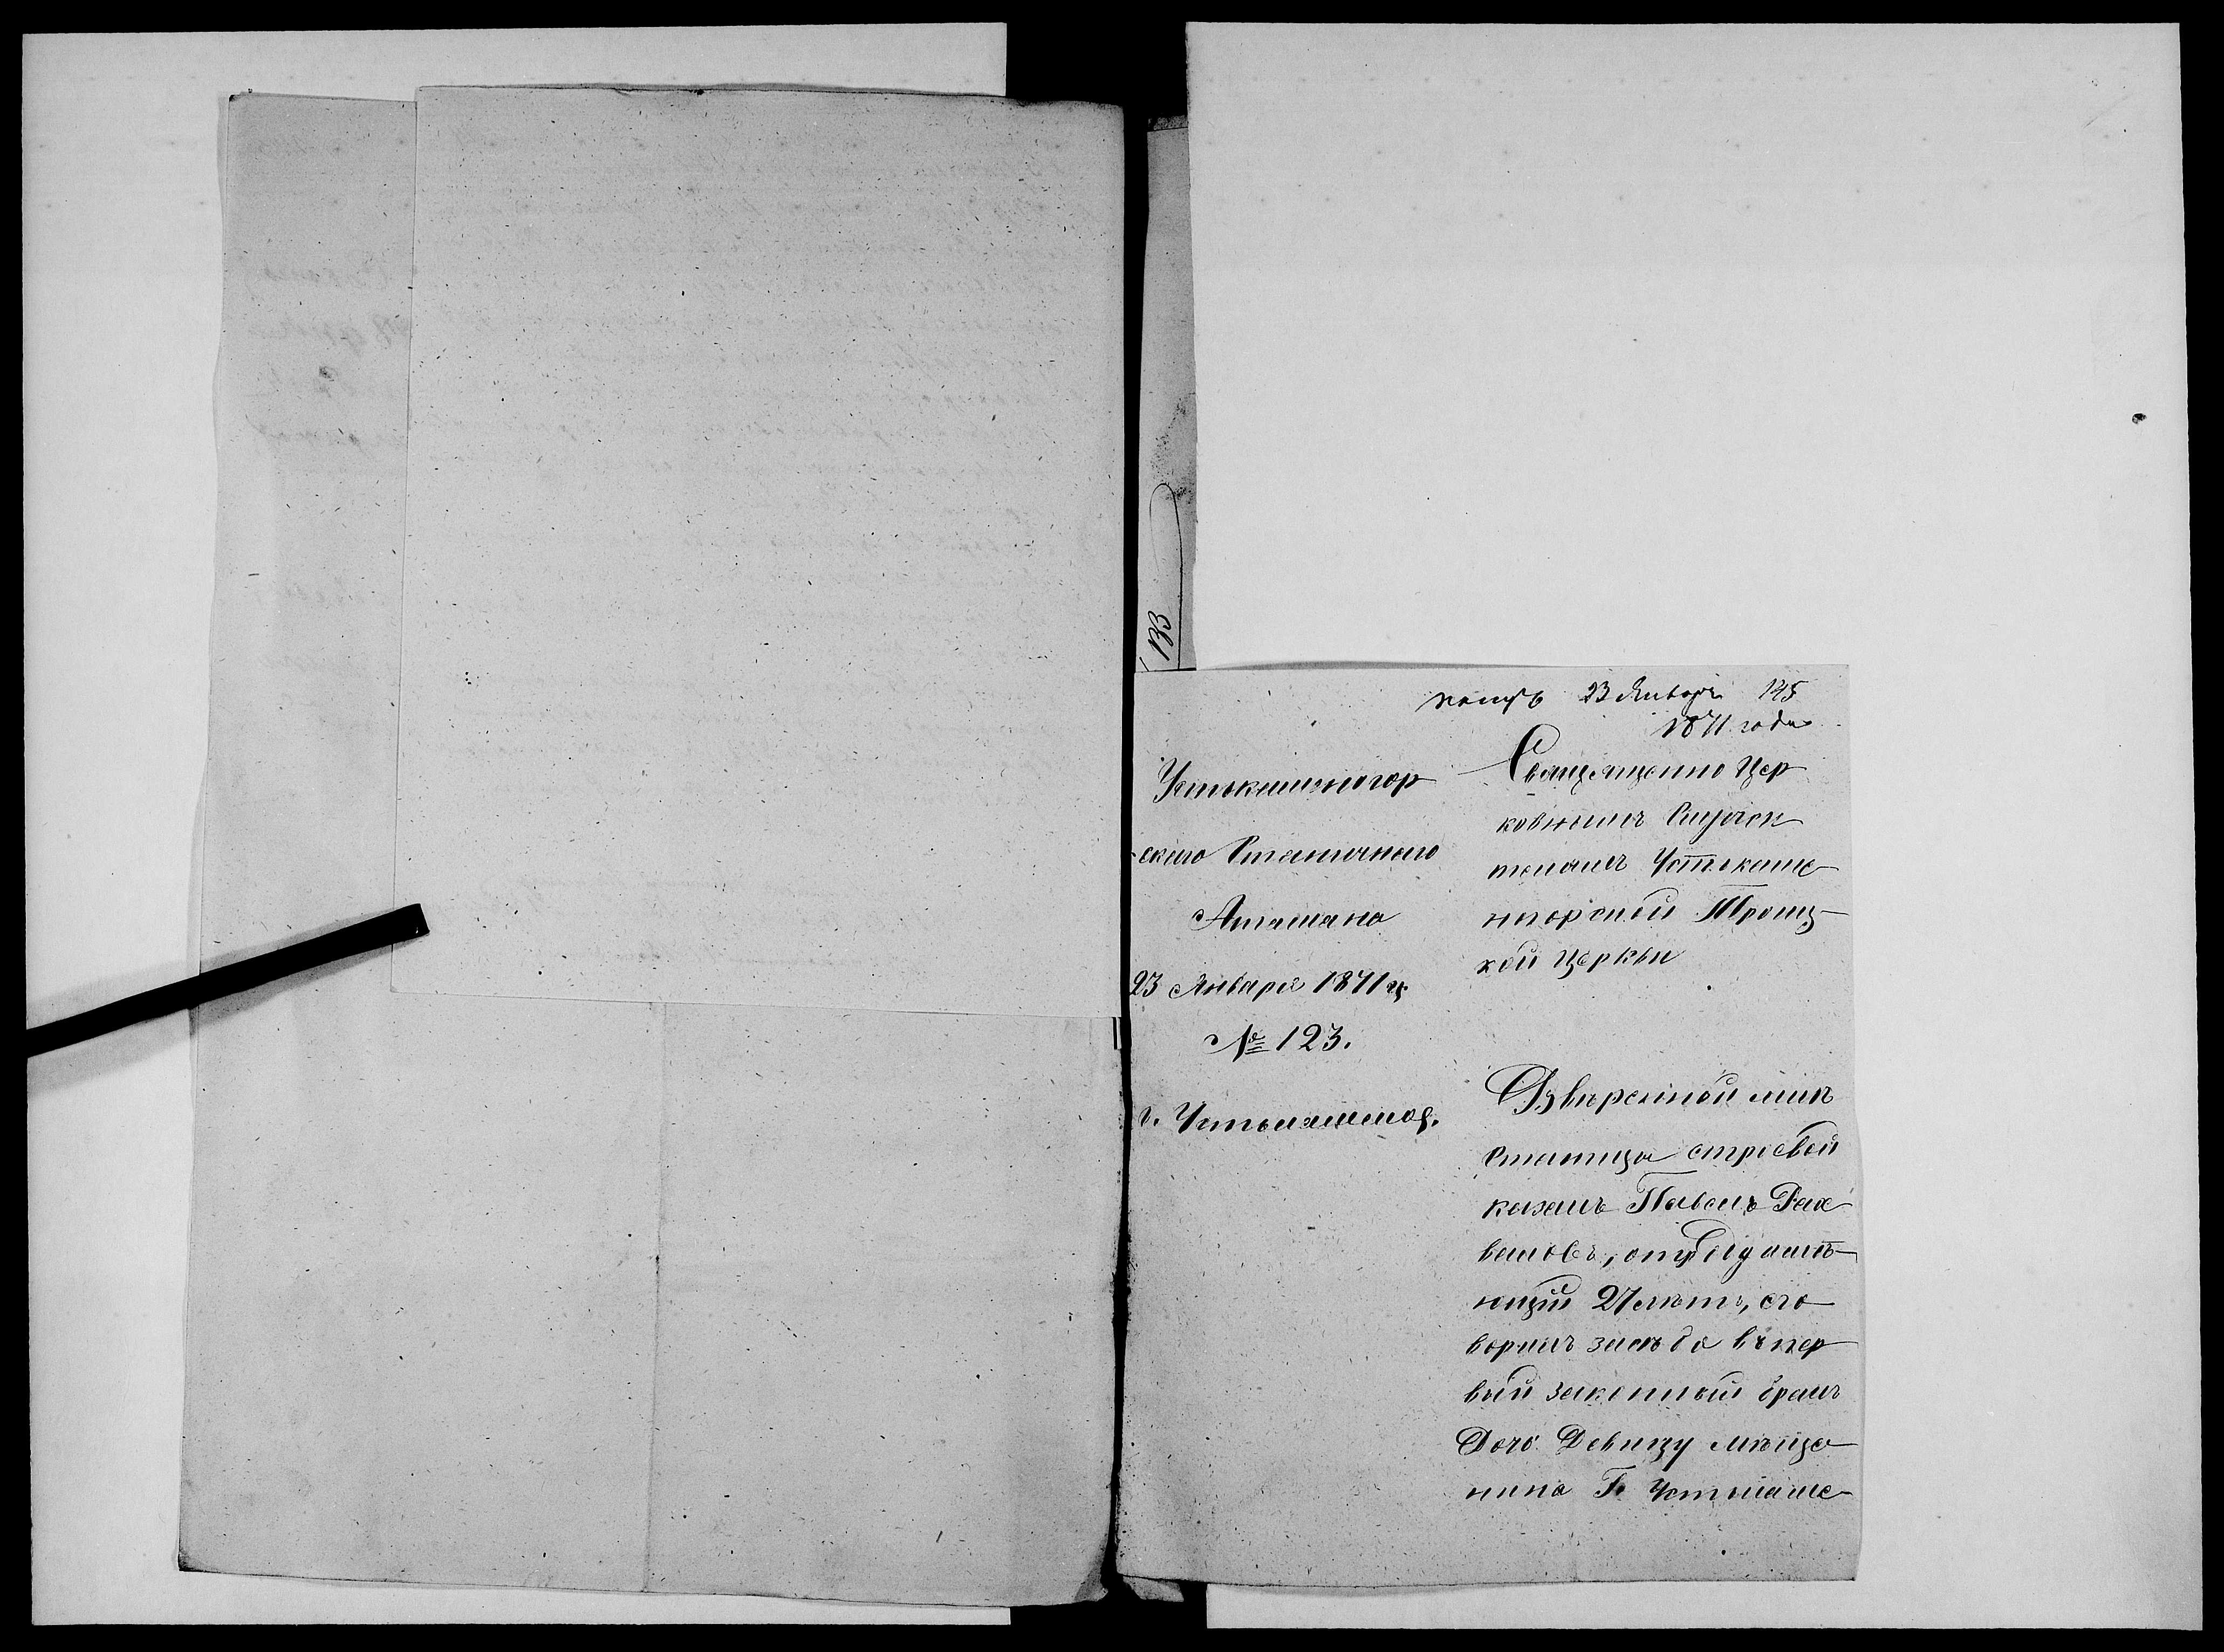 133
получ 23 Января 145
1871 года
Устькаменогор
скаго Станичнаго
Атамана
23 Января 1871 г.
№ 123.
г. Устькаменог.
Священно Цер
ковнымъ Служи
телямъ Устькаме
ногорской Троиц
кой Церкви
Ввѣренной мнѣ
Станицы строевой
казакъ Павелъ
имѣ
ющій 27 лѣтъ, сго
ворилъ за себя въ пер
вый законный бракъ
Дочь Девицу мѣща
нина Г. Устькаме